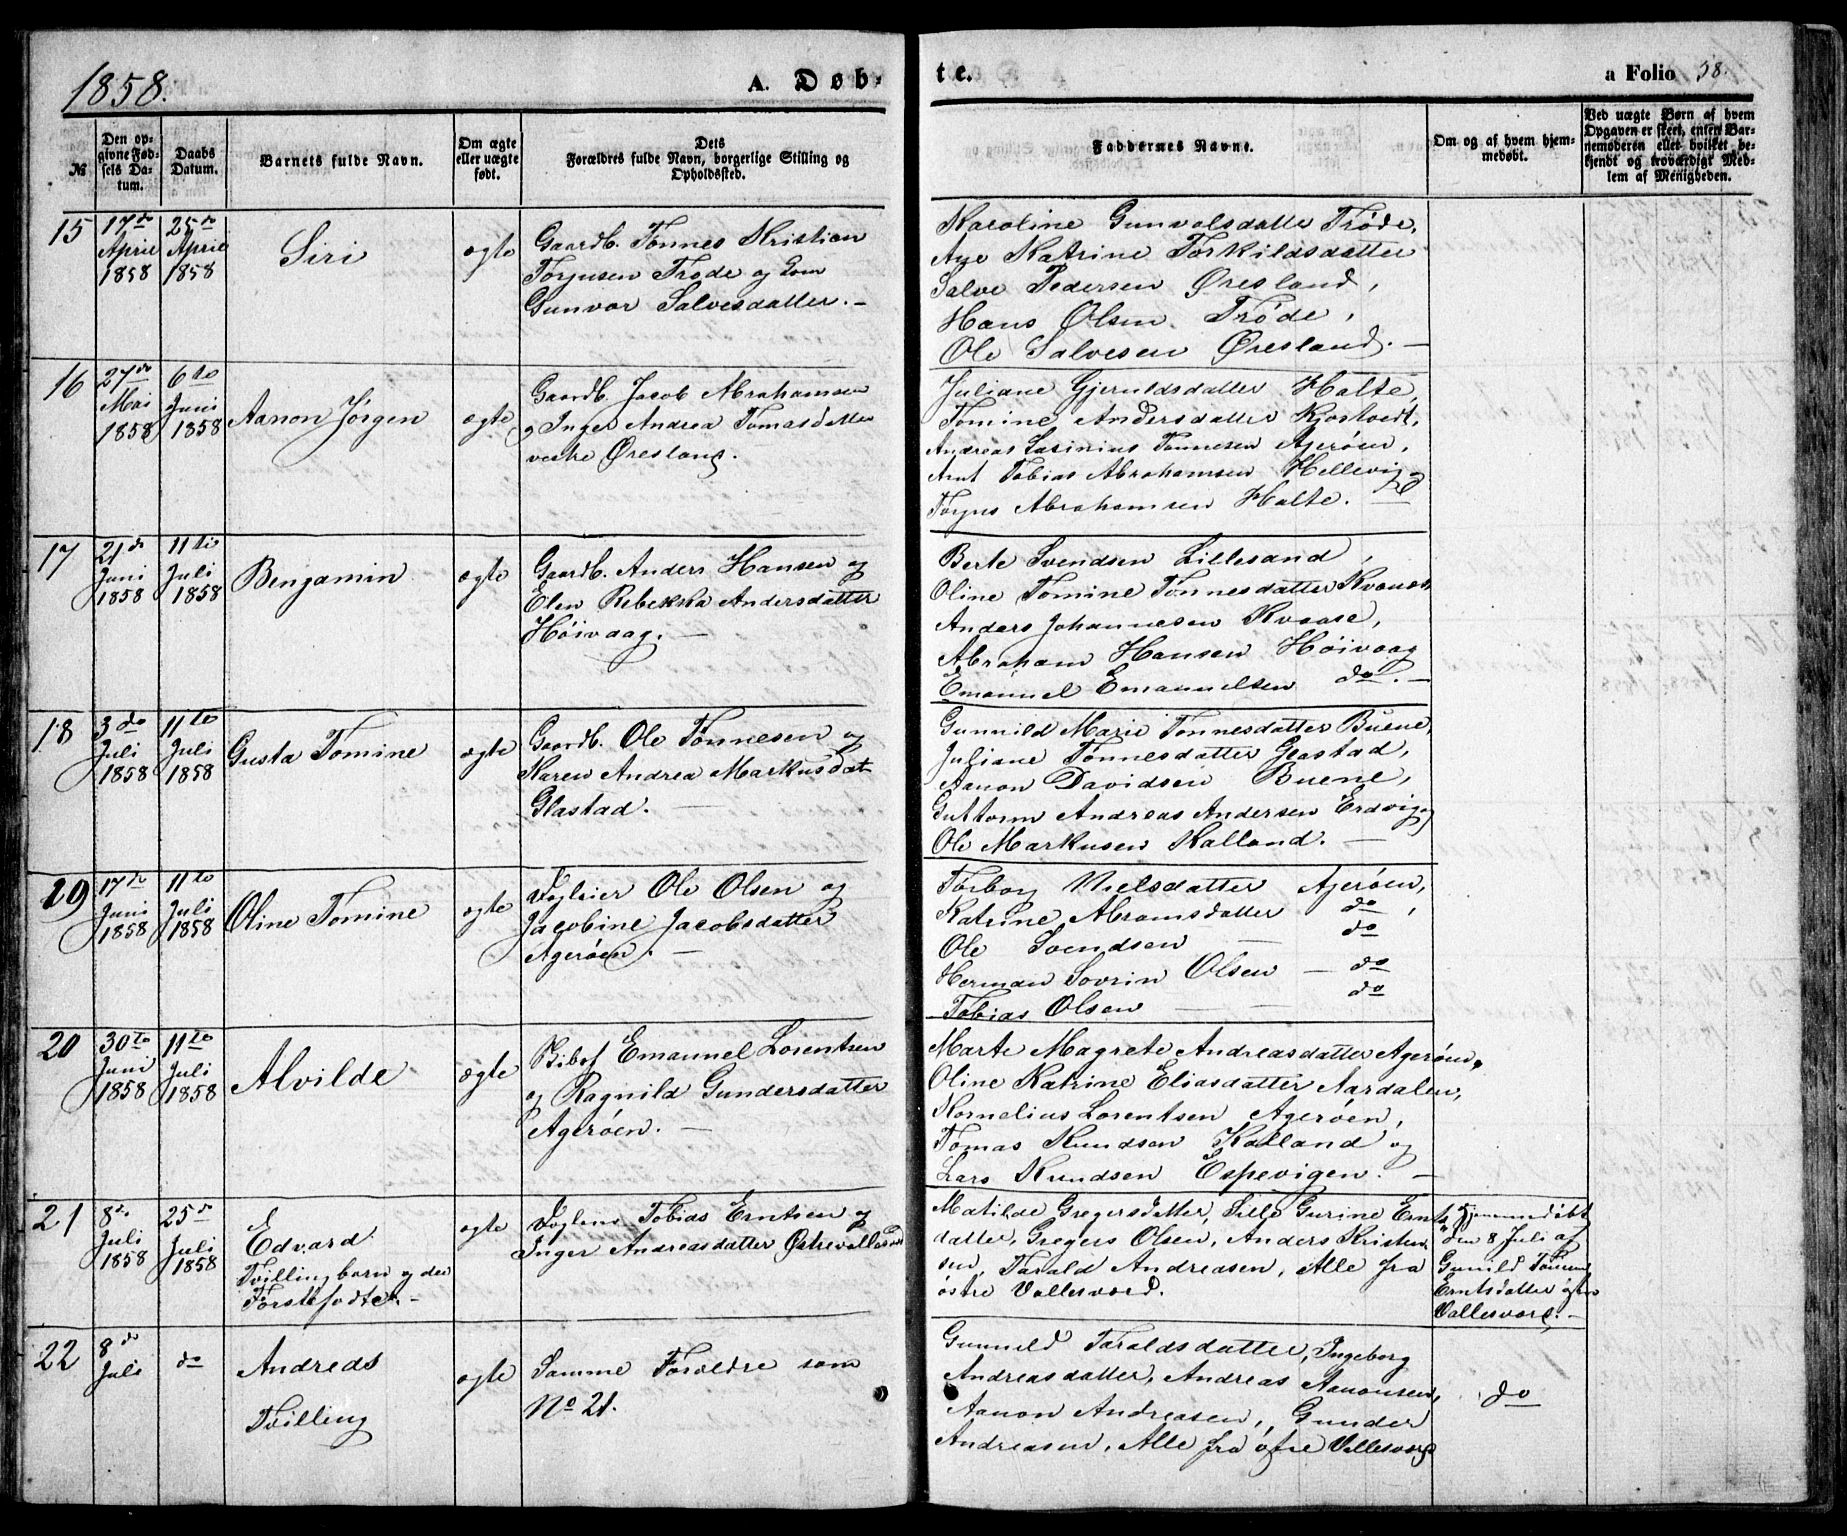 1858.
A. Døb-
te.
a Folio 38.
№
Den op-
givne Fød-
sels Da-
tum.
Daabs
Datum.
Barnets fulde Navn.
Om ægte
eller uægte
født.
Dets
Forældres fulde Navn, borgerlige Stilling og
Opholdssted.
Faddernes Navne.
Om og af hvem hjem-
medøbt.
Ved uægte Børn af hvem
Opgaven er skeet, enten Bar-
nemoderen eller hvilket be-
kjendt og troværdigt Med-
lem af Menigheden.
15
17de
April
1858
25de
April
1858
Siri
ægte
Gaardb. Tønnes Kristian
Torjusen Trøde og
Gunvor Salvesdatter. -
Karoline Gunvalsdatte Trøde,
Ane Katrine Torkildsdatter
Salve Pedersen Øresland,
Hans Olsen Trøde,
Ole Salvesen Øresland. -
16
27de
Mai
1858
6te
Juni
1858
Aanon Jørgen
ægte
Gaardb. Jacob Abrahamsen
og Inger Andrea Tomasdatter
vestre Øresland.
Juliane Gjeruldsdatter Holte,
Tomine Andersdatter Kjostvedt,
Andreas Tønnesen Agerøen,
Arnt Tobias Abrahamsen Hellevig og
Torjus Abrahamsen Holte. -
17
21de
Juni
1858
11te
Juli
1858
Benjamin
ægte
Gaardb. Anders Hansen og
Elen Rebekka Andersdatter
Høivaag. -
Berte Svendsen Lillesand,
Oline Tomine Tønnesdatter
Anders Johannesen Kvaase,
Abraham Hansen Høivaag
Emanuel Emanuelsen do. -
18
3de
Juli
1858
11te
Juli
1858
Gusta Tomine
ægte
Gaardb. Ole Tønnesen og
Karen Andrea Markusdat
Glastad. -
Gunnild Marie Tønnesdatter Buene,
Juliane Tønnesdatter Glastad,
Aanon Davidsen Buene,
Guttorm Andreas Andersen Erdvig og
Ole Markusen Kalland. -
19
17te
Juni
1858
11te
Juli
1858
Oline Tomine
ægte
Inglier Ole Olsen og
Jacobine Jacobsdatter
Agerøen. -
Torborg Nielsdatter Agerøen,
Katrine Abramsdatter do,
Ole Svendsen - do
Herman Sovrin Olsen - do
Tobias Olsen - - do
20
30te
Juni
1858
11te
Juli
1858
Alvilde
ægte
Bibof Emanuel Lorentsen
og Ragnild Gundersdatter
Agerøen. -
Marte Magrete Andreasdatter Agerøen,
Oline Katrine Eliasdatter Aardalen,
Kornelius Lorentsen Agerøen,
Tomas Knudsen Kalland og
Lars Knudsen Espevigen. -
21
8de
Juli
1858
25de
Juli
1858
Edvard
Tvillingbarn og den
Førstefødte. -
ægte
Tobias Erntsen og
Inger Andreasdatter Østrevallesværd
Matilde Gregersdatter, Sille Gurine Ernts
datter, Gregers Olsen, Anders Kristen
sen, Tarald Andreasen, Alle fra
østre Vallesværd.
Hjemmedøbt
den 8 Juli af
Gunild Tomine
Erntsdatter østre
Vallesværd. -
22
8de
Juli
do
Andreas
Tvilling
ægte
Samme Forældre som
No 21.
Gunnild Taraldsdatter, Ingeborg
Andreasdatter, Andreas Aanonsen,
Aanon Andreasen, Gunder
Andreasen, Alle fra østre Vallesværd
do